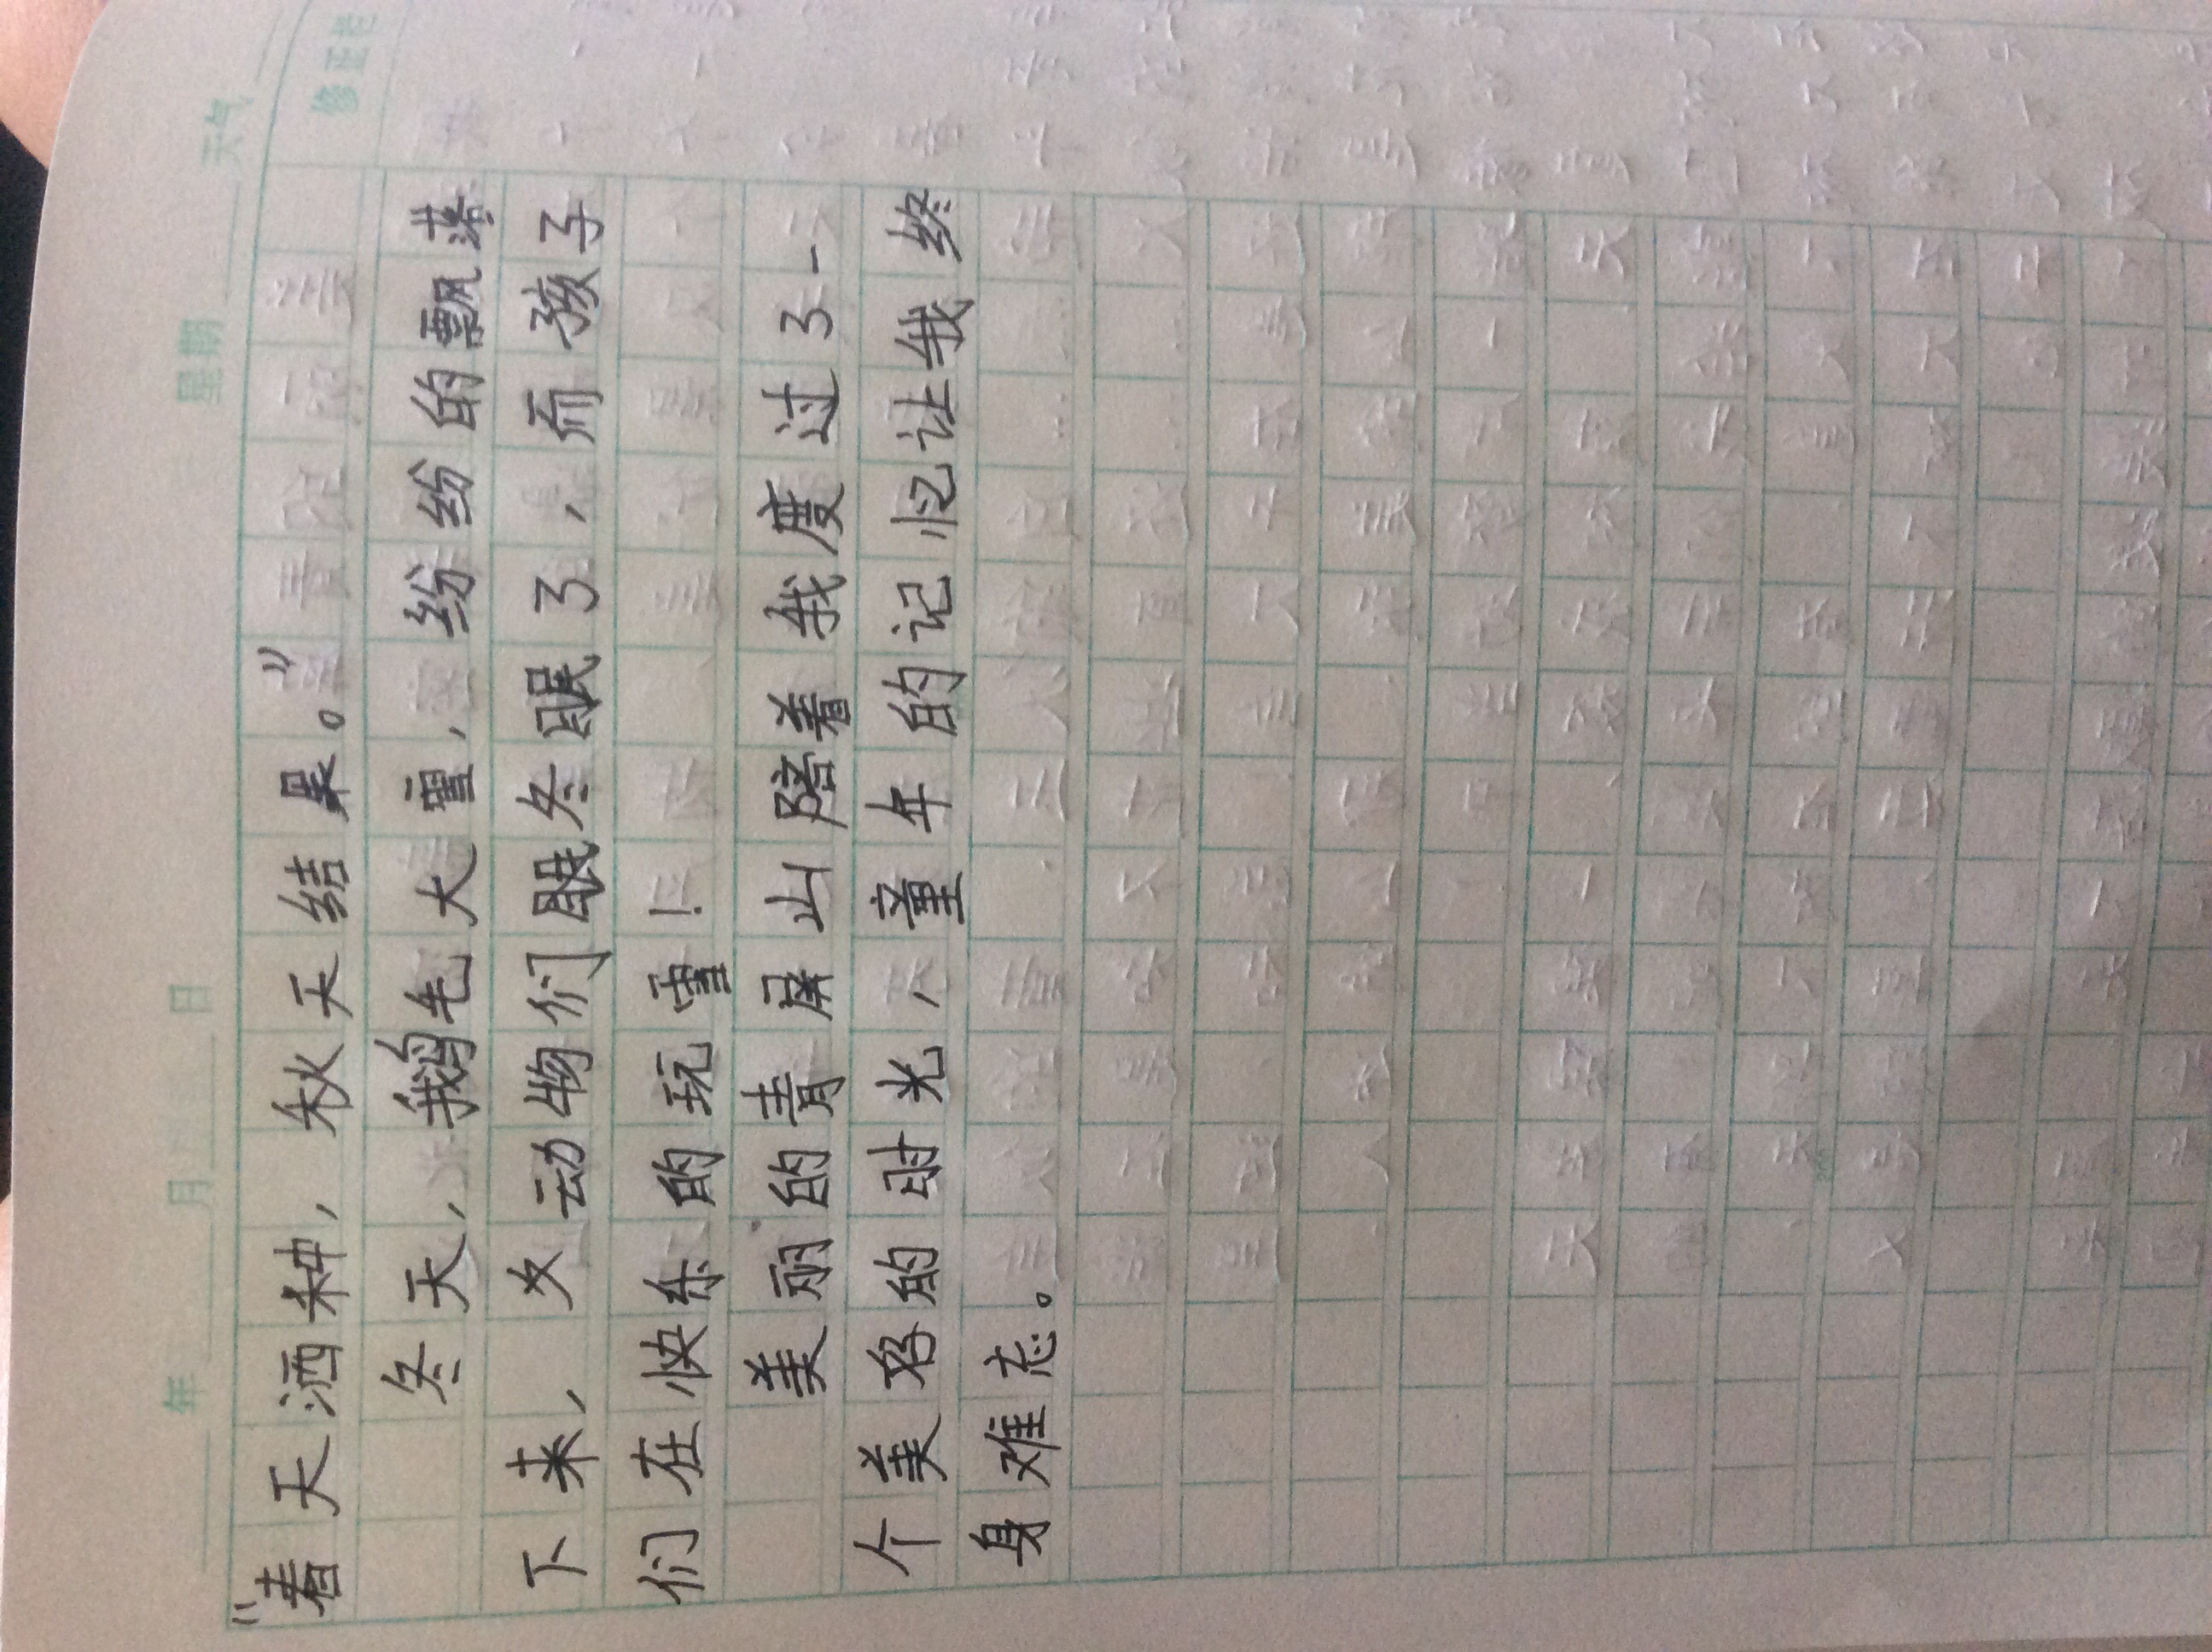 年 月 日 星期 天气
修正栏
“春天洒种，秋天结果。”
冬天，鹅毛大雪，纷纷的飘落
下来，动物们眠冬眠了，而孩子
们在快乐的玩雪！
美丽的青屏山陪着我度过了一
个美好的时光，童年的记忆让我终
身难忘。